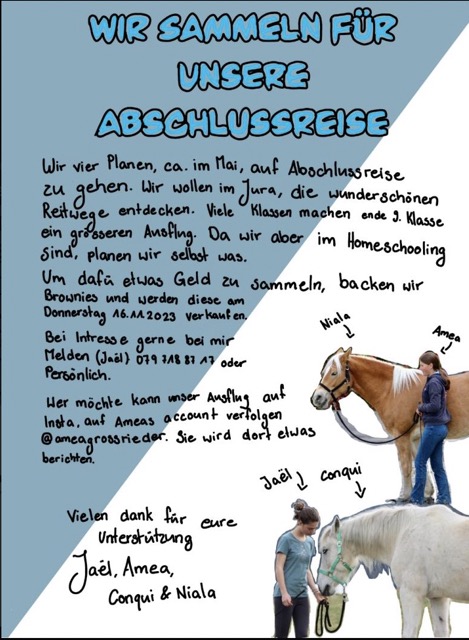 WIR SAMMELN FÜR
UNSERE
ABSCHLUSSREISE
Wir vier Planen, ca. im Mai, auf Abschlussreise
zu gehen. Wir wollen im Jura, die wunderschönen
Reitwege entdecken. Viele Klassen machen ende 9. Klasse
ein grösseren Ausflug. Da wir aber im Homeschooling
sind, planen wir selbst was.
Um dafü etwas Geld zu sammeln, backen wir
Brownies und werden diese am
Donnerstag 16.11.2023 verkaufen.
Bei Intresse gerne bei mir
Melden (Jaël) 079 718 87 17 oder
Persönlich.
Wer möchte kann unser Ausflug auf
Insta, auf Ameas account verfolgen
@ameagrossrieder. Sie wird dort etwas
berichten.
Niala
Amea
Jaël
Conqui
Vielen dank für eure
Unterstützung
Jaël, Amea,
Conqui & Niala